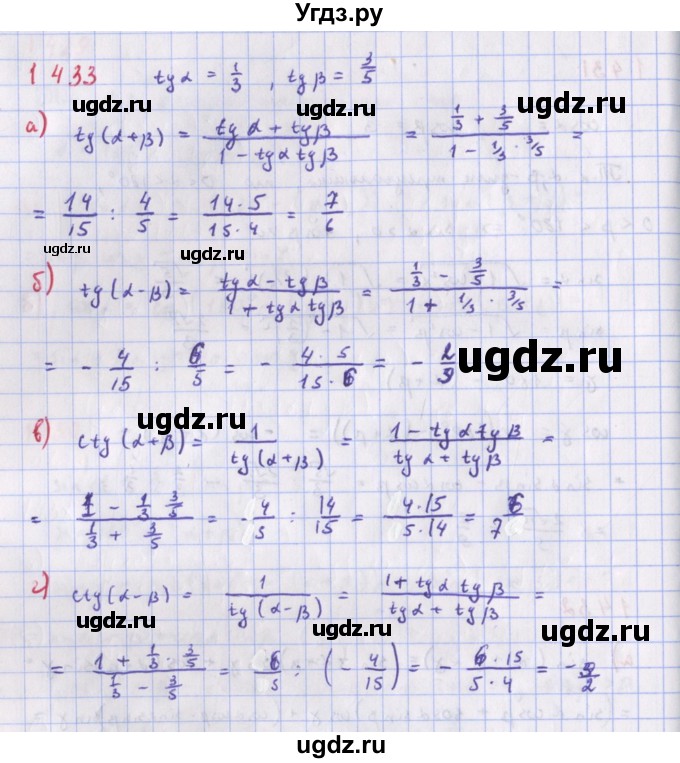 Угдз.ру
1433 tg α = 1/3 , tg β = 3/5
ugdz.ru ugdz.ru
а) tg(α+β) = (tg α + tg β)/(1 - tg α tg β) = (1/3 + 3/5)/(1 - 1/3 · 3/5) =
ugdz.ru
= 14/15 : 4/5 = (14·5)/(15·4) = 7/6
ugdz.ru ugdz.ru
б) tg(α-β) = (tg α - tg β)/(1 + tg α tg β) = (1/3 - 3/5)/(1 + 1/3 · 3/5) =
= - 4/15 : 6/5 = - (4·5)/(15·6) = - 2/9
ugdz.ru
ugdz.ru
в) ctg(α+β) = 1/tg(α+β) = (1 - tg α tg β)/(tg α + tg β) =
= (1 - 1/3 3/5)/(1/3 + 3/5) = 4/5 : 14/15 = (4·15)/(5·14) = 6/7
ugdz.ru
г) ctg(α-β) = 1/tg(α-β) = (1 + tg α tg β)/(tg α + tg β) =
ugdz.ru ugdz.ru
= (1 + 1/3 · 3/5)/(1/3 - 3/5) = 6/5 : (- 4/15) = - (6·15)/(5·4) = - 9/2
ugdz.ru
ugdz.ru